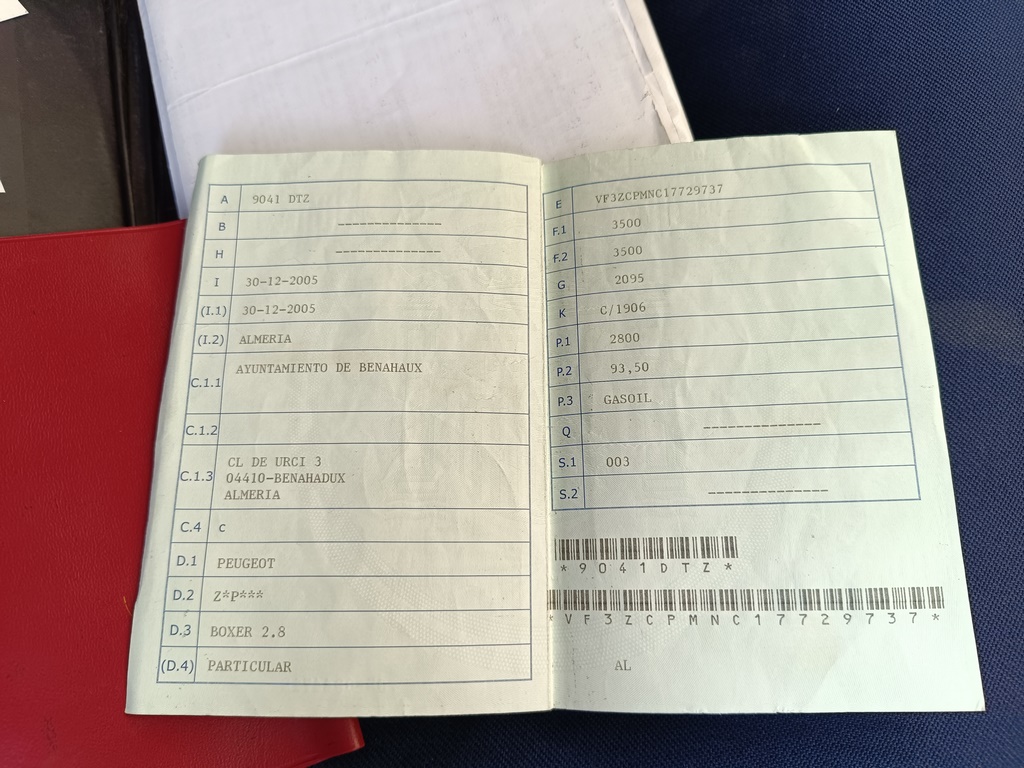 A 9041 DTZ
B --------------
H --------------
I 30-12-2005
(I.1) 30-12-2005
(I.2) ALMERIA
C.1.1 AYUNTAMIENTO DE BENAHAUX
C.1.2
C.1.3 CL DE URCI 3
04410-BENAHADUX
ALMERIA
C.4 c
D.1 PEUGEOT
D.2 Z*P***
D.3 BOXER 2.8
(D.4) PARTICULAR
E VF3ZCPMNC17729737
F.1 3500
F.2 3500
G 2095
K C/1906
P.1 2800
P.2 93,50
P.3 GASOIL
Q --------------
S.1 003
S.2 --------------
*9041DTZ*
*VF3ZCPMNC17729737*
AL